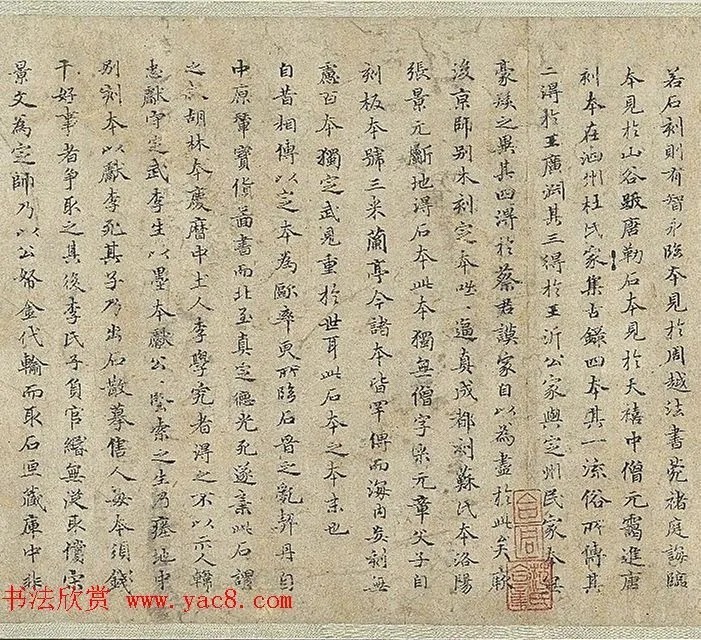 若石刻則有智永臨本見於周越法書苑褚庭誨臨
本見於山谷跋唐勒石本見於天禧中僧元靄進唐
刻本在泗州杜氏家集古錄四本其一流俗所傳其
二得於王廣淵其三得於王沂公家與定州民家本無
豪髮之異其四得於蔡君謨家自以為盡於此矣厥
後京師別木刻定本咄咄逼真成都刻蘇氏本洛陽
張景元斸地得石本此本獨無僧字米元章父子自
刻板本號三米蘭亭今諸本皆罕傳而海內刻無
慮百本獨定武見重於世耳此石本之本末也
自昔相傳以定本為歐率更所臨石晉之亂契丹自
中原輦寶貨圖書而北至真定德光死遂棄此石謂
之胡林本慶曆中士人李學究者得之不以示人韓
忠獻守定武李生以墨本獻公公堅索之生乃瘞地中
別刻本以獻李死其子乃出石散摹售人每本須錢
千好事者爭取之其後李氏子負官緡無從取償宋
景文為定帥乃以公帑金代輸而取石匣藏庫中非
合同
书法欣赏 www.yac8.com